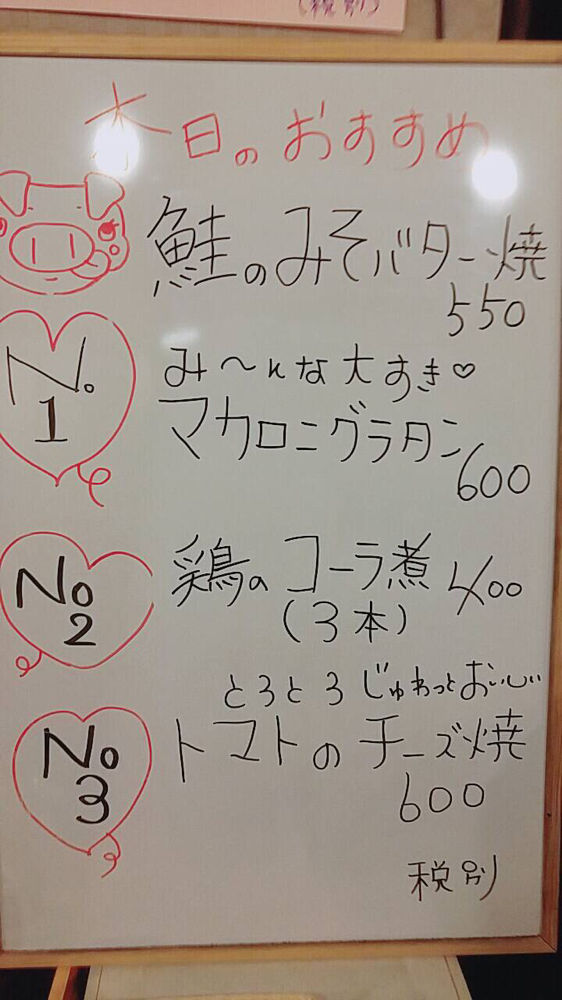 (税別)
本日のおすすめ
鮭のみそバター焼
550
No.1
み〜んな大すき♡
マカロニグラタン
600
No2
鶏のコーラ煮 400
(3本)
とろとろ じゅわっとおいしい
No3
トマトのチーズ焼
600
税別